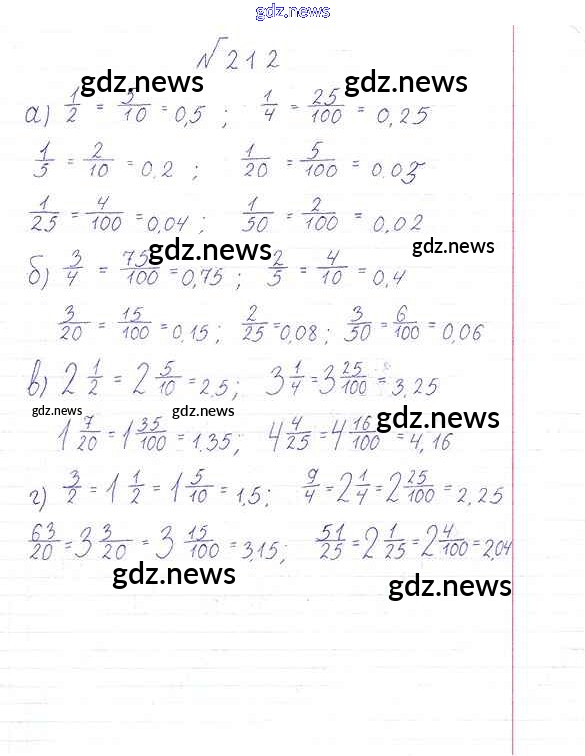 gdz.news
№ 212
gdz.news gdz.news
а) 1/2 = 5/10 = 0,5 ; 1/4 = 25/100 = 0,25
1/5 = 2/10 = 0.2 ; 1/20 = 5/100 = 0.05
1/25 = 4/100 = 0,04 ; 1/50 = 2/100 = 0,02
gdz.news gdz.news
б) 3/4 = 75/100 = 0,75 ; 2/5 = 4/10 = 0,4
3/20 = 15/100 = 0,15 ; 2/25 = 0,08 ; 3/50 = 6/100 = 0,06
в) 2 1/2 = 2 5/10 = 2,5 ; 3 1/4 = 3 25/100 = 3,25
gdz.news gdz.news gdz.news
1 7/20 = 1 35/100 = 1,35 ; 4 4/25 = 4 16/100 = 4,16
г) 3/2 = 1 1/2 = 1 5/10 = 1,5 ; 9/4 = 2 1/4 = 2 25/100 = 2,25
63/20 = 3 3/20 = 3 15/100 = 3,15 ; 51/25 = 2 1/25 = 2 4/100 = 2,04
gdz.news gdz.news